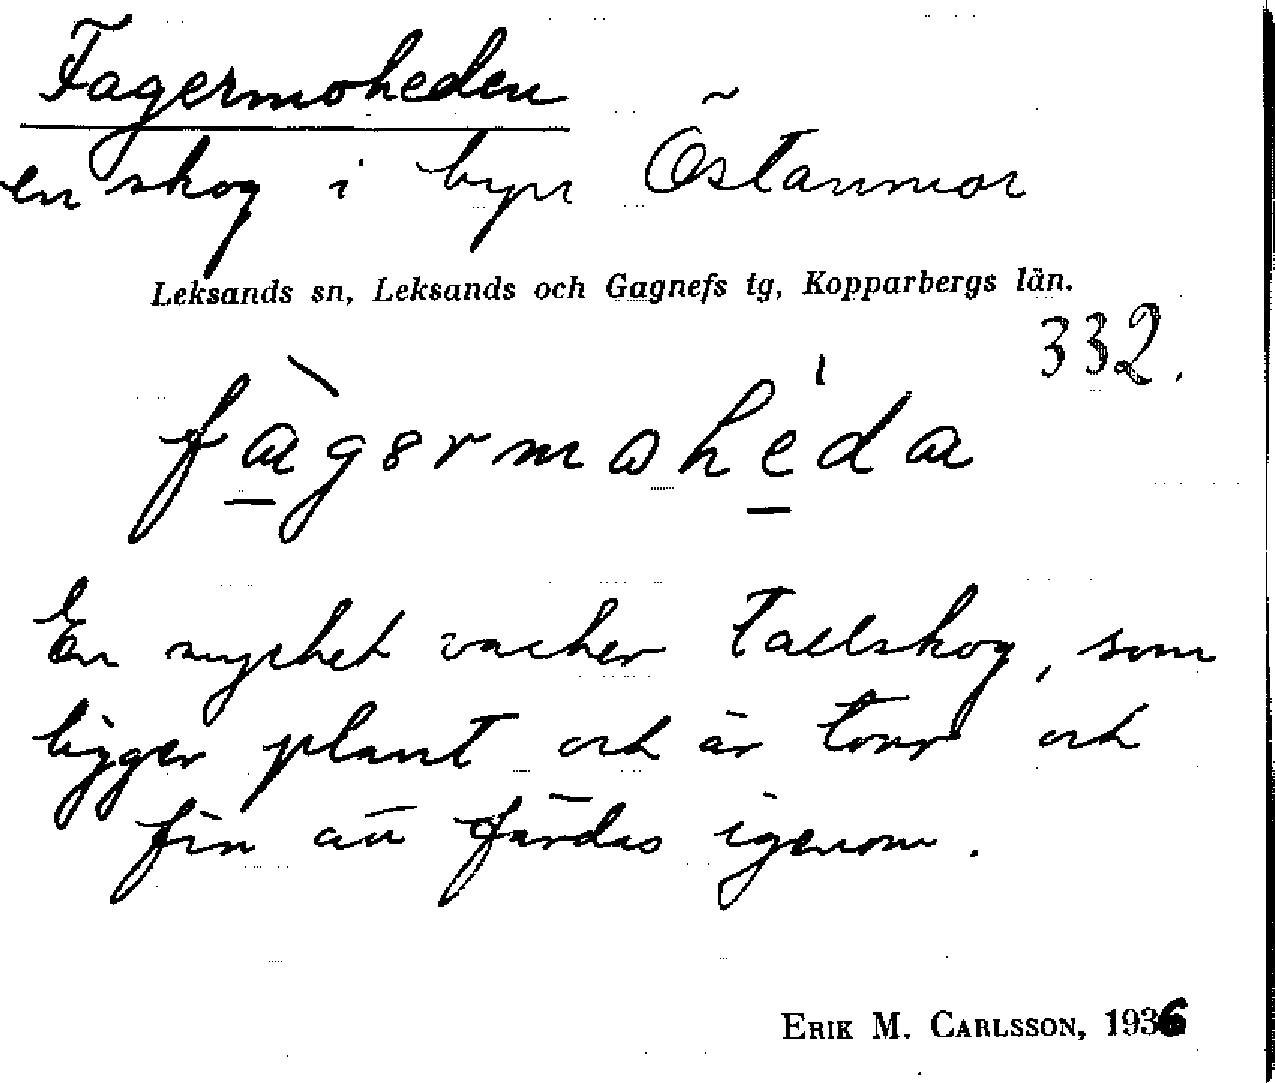 Fagermoheden
en skog i byn Östanmor
Leksands sn, Leksands och Gagnefs tg, Kopparbergs län.
332.
fàgərmohéda
En mycket vacker tallskog, som
ligger plant och är torr och
fin att färdas igenom.
ERIK M. CARLSSON, 1936